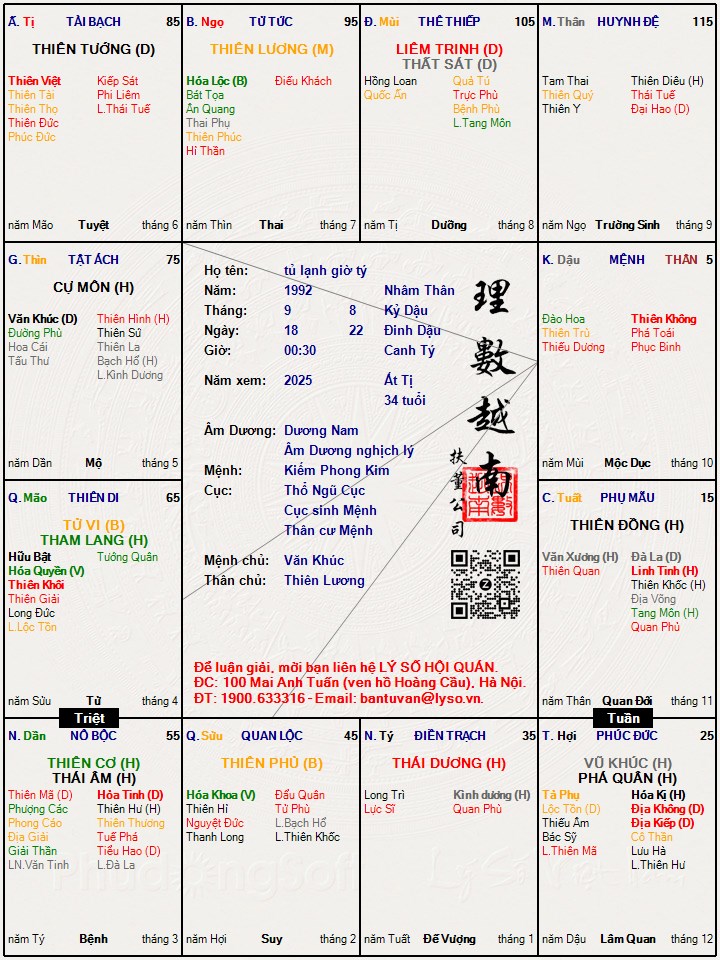 Ấ. Tị TÀI BẠCH 85
THIÊN TƯỚNG (D)
Thiên Việt Kiếp Sát
Thiên Tài Phi Liêm
Thiên Thọ L.Thái Tuế
Thiên Đức
Phúc Đức
năm Mão Tuyệt tháng 6
B. Ngọ TỬ TỨC 95
THIÊN LƯƠNG (M)
Hóa Lộc (B) Điếu Khách
Bát Tọa
Ân Quang
Thai Phụ
Thiên Phúc
Hỉ Thần
năm Thìn Thai tháng 7
Đ. Mùi THÊ THIẾP 105
LIÊM TRINH (D)
THẤT SÁT (D)
Hồng Loan Quả Tú
Quốc Ấn Trực Phù
Bệnh Phù
L.Tang Môn
năm Tị Dưỡng tháng 8
M. Thân HUYNH ĐỆ 115
Tam Thai Thiên Diêu (H)
Thiên Quý Thái Tuế
Thiên Y Đại Hao (D)
năm Ngọ Trường Sinh tháng 9
G. Thìn TẬT ÁCH 75
CỰ MÔN (H)
Văn Khúc (D) Thiên Hình (H)
Đường Phù Thiên Sứ
Hoa Cái Thiên La
Tấu Thư Bạch Hổ (H)
L.Kình Dương
năm Dần Mộ tháng 5
Họ tên: tủ lạnh giờ tý
Năm: 1992 Nhâm Thân
Tháng: 9 8 Kỷ Dậu
Ngày: 18 22 Đinh Dậu
Giờ: 00:30 Canh Tý
Năm xem: 2025 Ất Tị
34 tuổi
Âm Dương: Dương Nam
Âm Dương nghịch lý
Mệnh: Kiếm Phong Kim
Cục: Thổ Ngũ Cục
Cục sinh Mệnh
Thân cư Mệnh
Mệnh chủ: Văn Khúc
Thân chủ: Thiên Lương
理數越南
扶董公司
Để luận giải, mời bạn liên hệ LÝ SỐ HỘI QUÁN.
ĐC: 100 Mai Anh Tuấn (ven hồ Hoàng Cầu), Hà Nội.
ĐT: 1900.633316 - Email: bantuvan@lyso.vn.
K. Dậu MỆNH THÂN 5
Đào Hoa Thiên Không
Thiên Trù Phá Toái
Thiếu Dương Phục Binh
năm Mùi Mộc Dục tháng 10
Q. Mão THIÊN DI 65
TỬ VI (B)
THAM LANG (H)
Hữu Bật Tướng Quân
Hóa Quyền (V)
Thiên Khôi
Thiên Giải
Long Đức
L.Lộc Tồn
năm Sửu Tử tháng 4
C. Tuất PHỤ MẪU 15
THIÊN ĐỒNG (H)
Văn Xương (H) Đà La (D)
Thiên Quan Linh Tinh (H)
Thiên Khốc (H)
Địa Võng
Tang Môn (H)
Quan Phủ
năm Thân Quan Đới tháng 11
Triệt
Tuần
N. Dần NÔ BỘC 55
THIÊN CƠ (H)
THÁI ÂM (H)
Thiên Mã (D) Hỏa Tinh (D)
Phượng Các Thiên Hư (H)
Phong Cáo Thiên Thương
Địa Giải Tuế Phá
Giải Thần Tiểu Hao (D)
LN.Văn Tinh L.Đà La
năm Tý Bệnh tháng 3
Q. Sửu QUAN LỘC 45
THIÊN PHỦ (B)
Hóa Khoa (V) Đẩu Quân
Thiên Hỉ Tử Phù
Nguyệt Đức L.Bạch Hổ
Thanh Long L.Thiên Khốc
năm Hợi Suy tháng 2
N. Tý ĐIỀN TRẠCH 35
THÁI DƯƠNG (H)
Long Trì Kình dương (H)
Lực Sĩ Quan Phù
năm Tuất Đế Vượng tháng 1
T. Hợi PHÚC ĐỨC 25
VŨ KHÚC (H)
PHÁ QUÂN (H)
Tả Phụ Hóa Kị (H)
Lộc Tồn (D) Địa Không (D)
Thiếu Âm Địa Kiếp (D)
Bác Sỹ Cô Thần
L.Thiên Mã Lưu Hà
L.Thiên Hư
năm Dậu Lâm Quan tháng 12